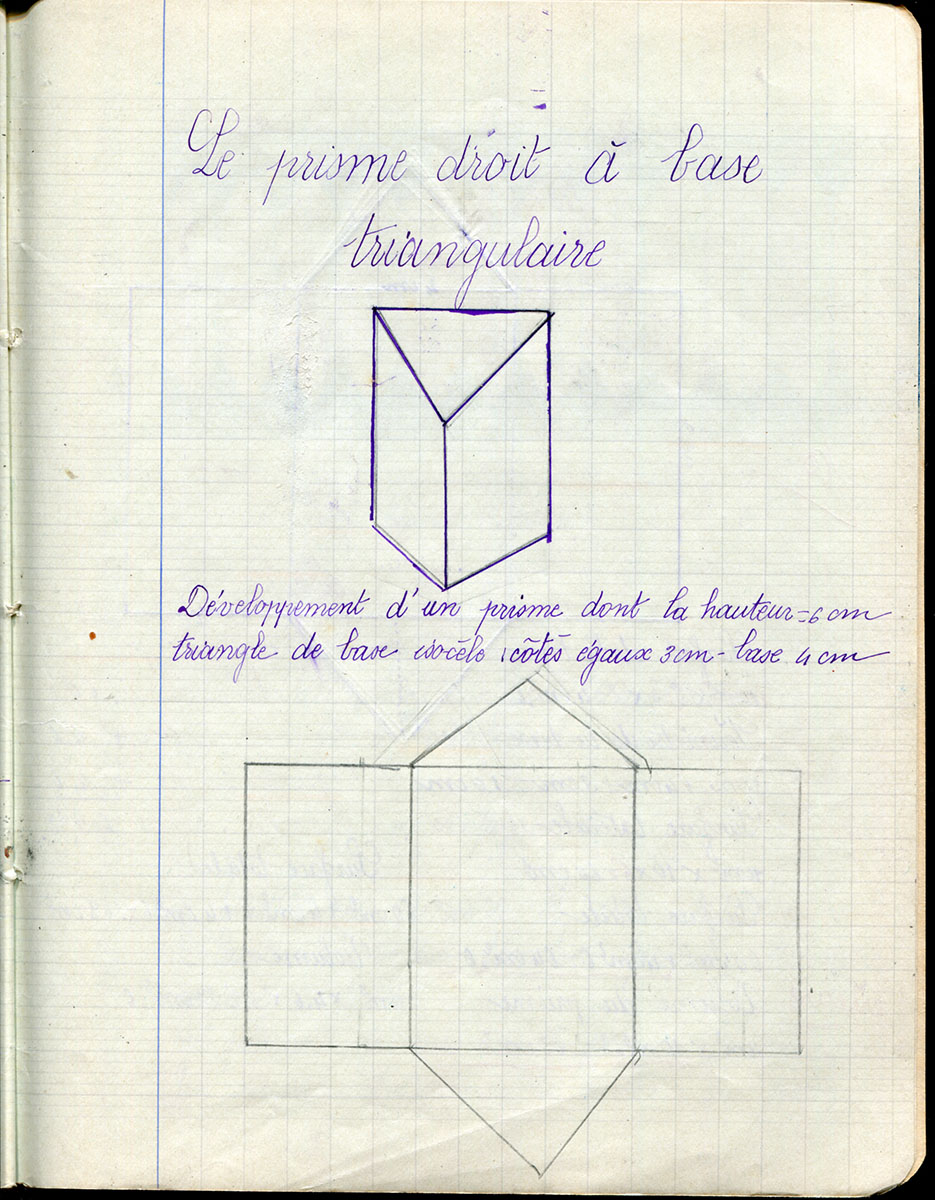 Le prisme droit à base
triangulaire
Développement d'un prisme dont la hauteur = 6 cm
triangle de base isocèle, côtés égaux 3 cm - base 4 cm